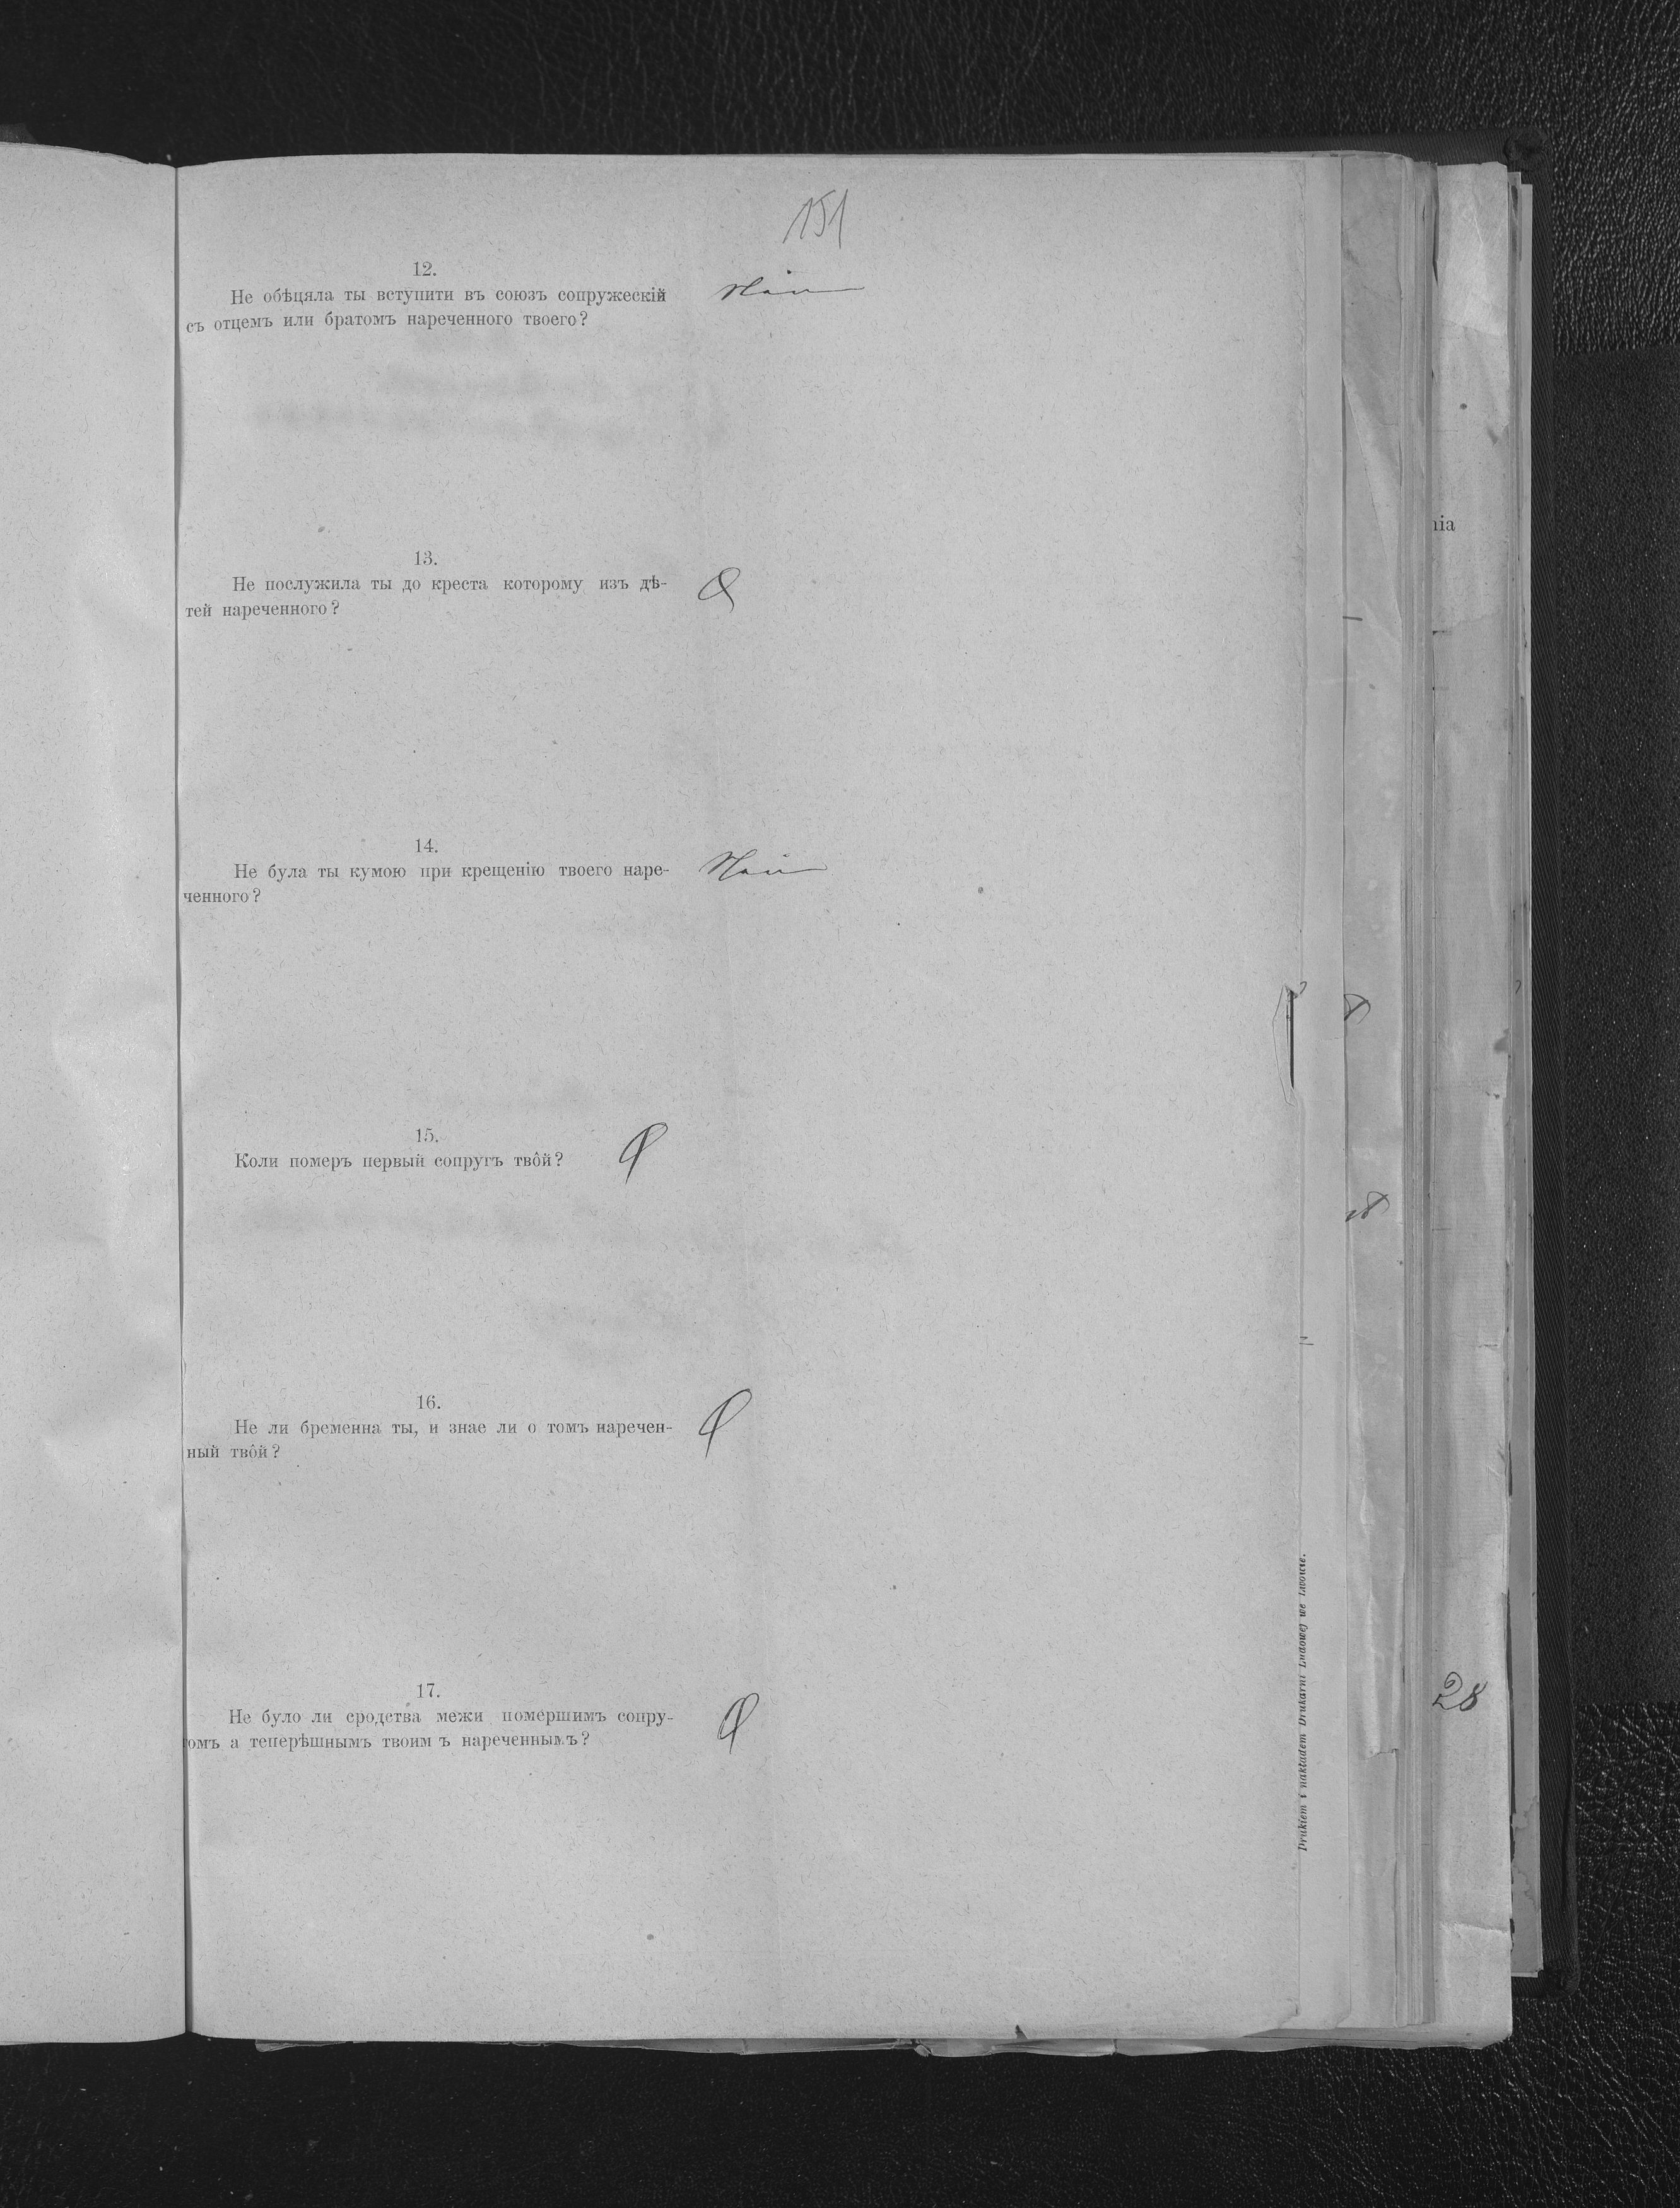 151
12.
Не обѣцяла ты вступити въ союзъ сопружескій
съ отцемъ или братомъ нареченного твоего?
Нѣи
13.
Не послужила ты до креста которому изъ дѣ-
тей нареченного?
14.
Не була ты кумою при крещенію твоего наре-
ченного?
15.
Коли померъ первый сопругъ твôй?
16.
Не ли бременна ты, и знае ли о томъ наречен-
ный твôй?
17.
Не було ли сродства межи помершимъ сопру-
омъ а теперѣшнымъ твоим ъ нареченнымъ?
Drukiem i nakładem Drukarni Ludowej we Lwowie.
nia
28